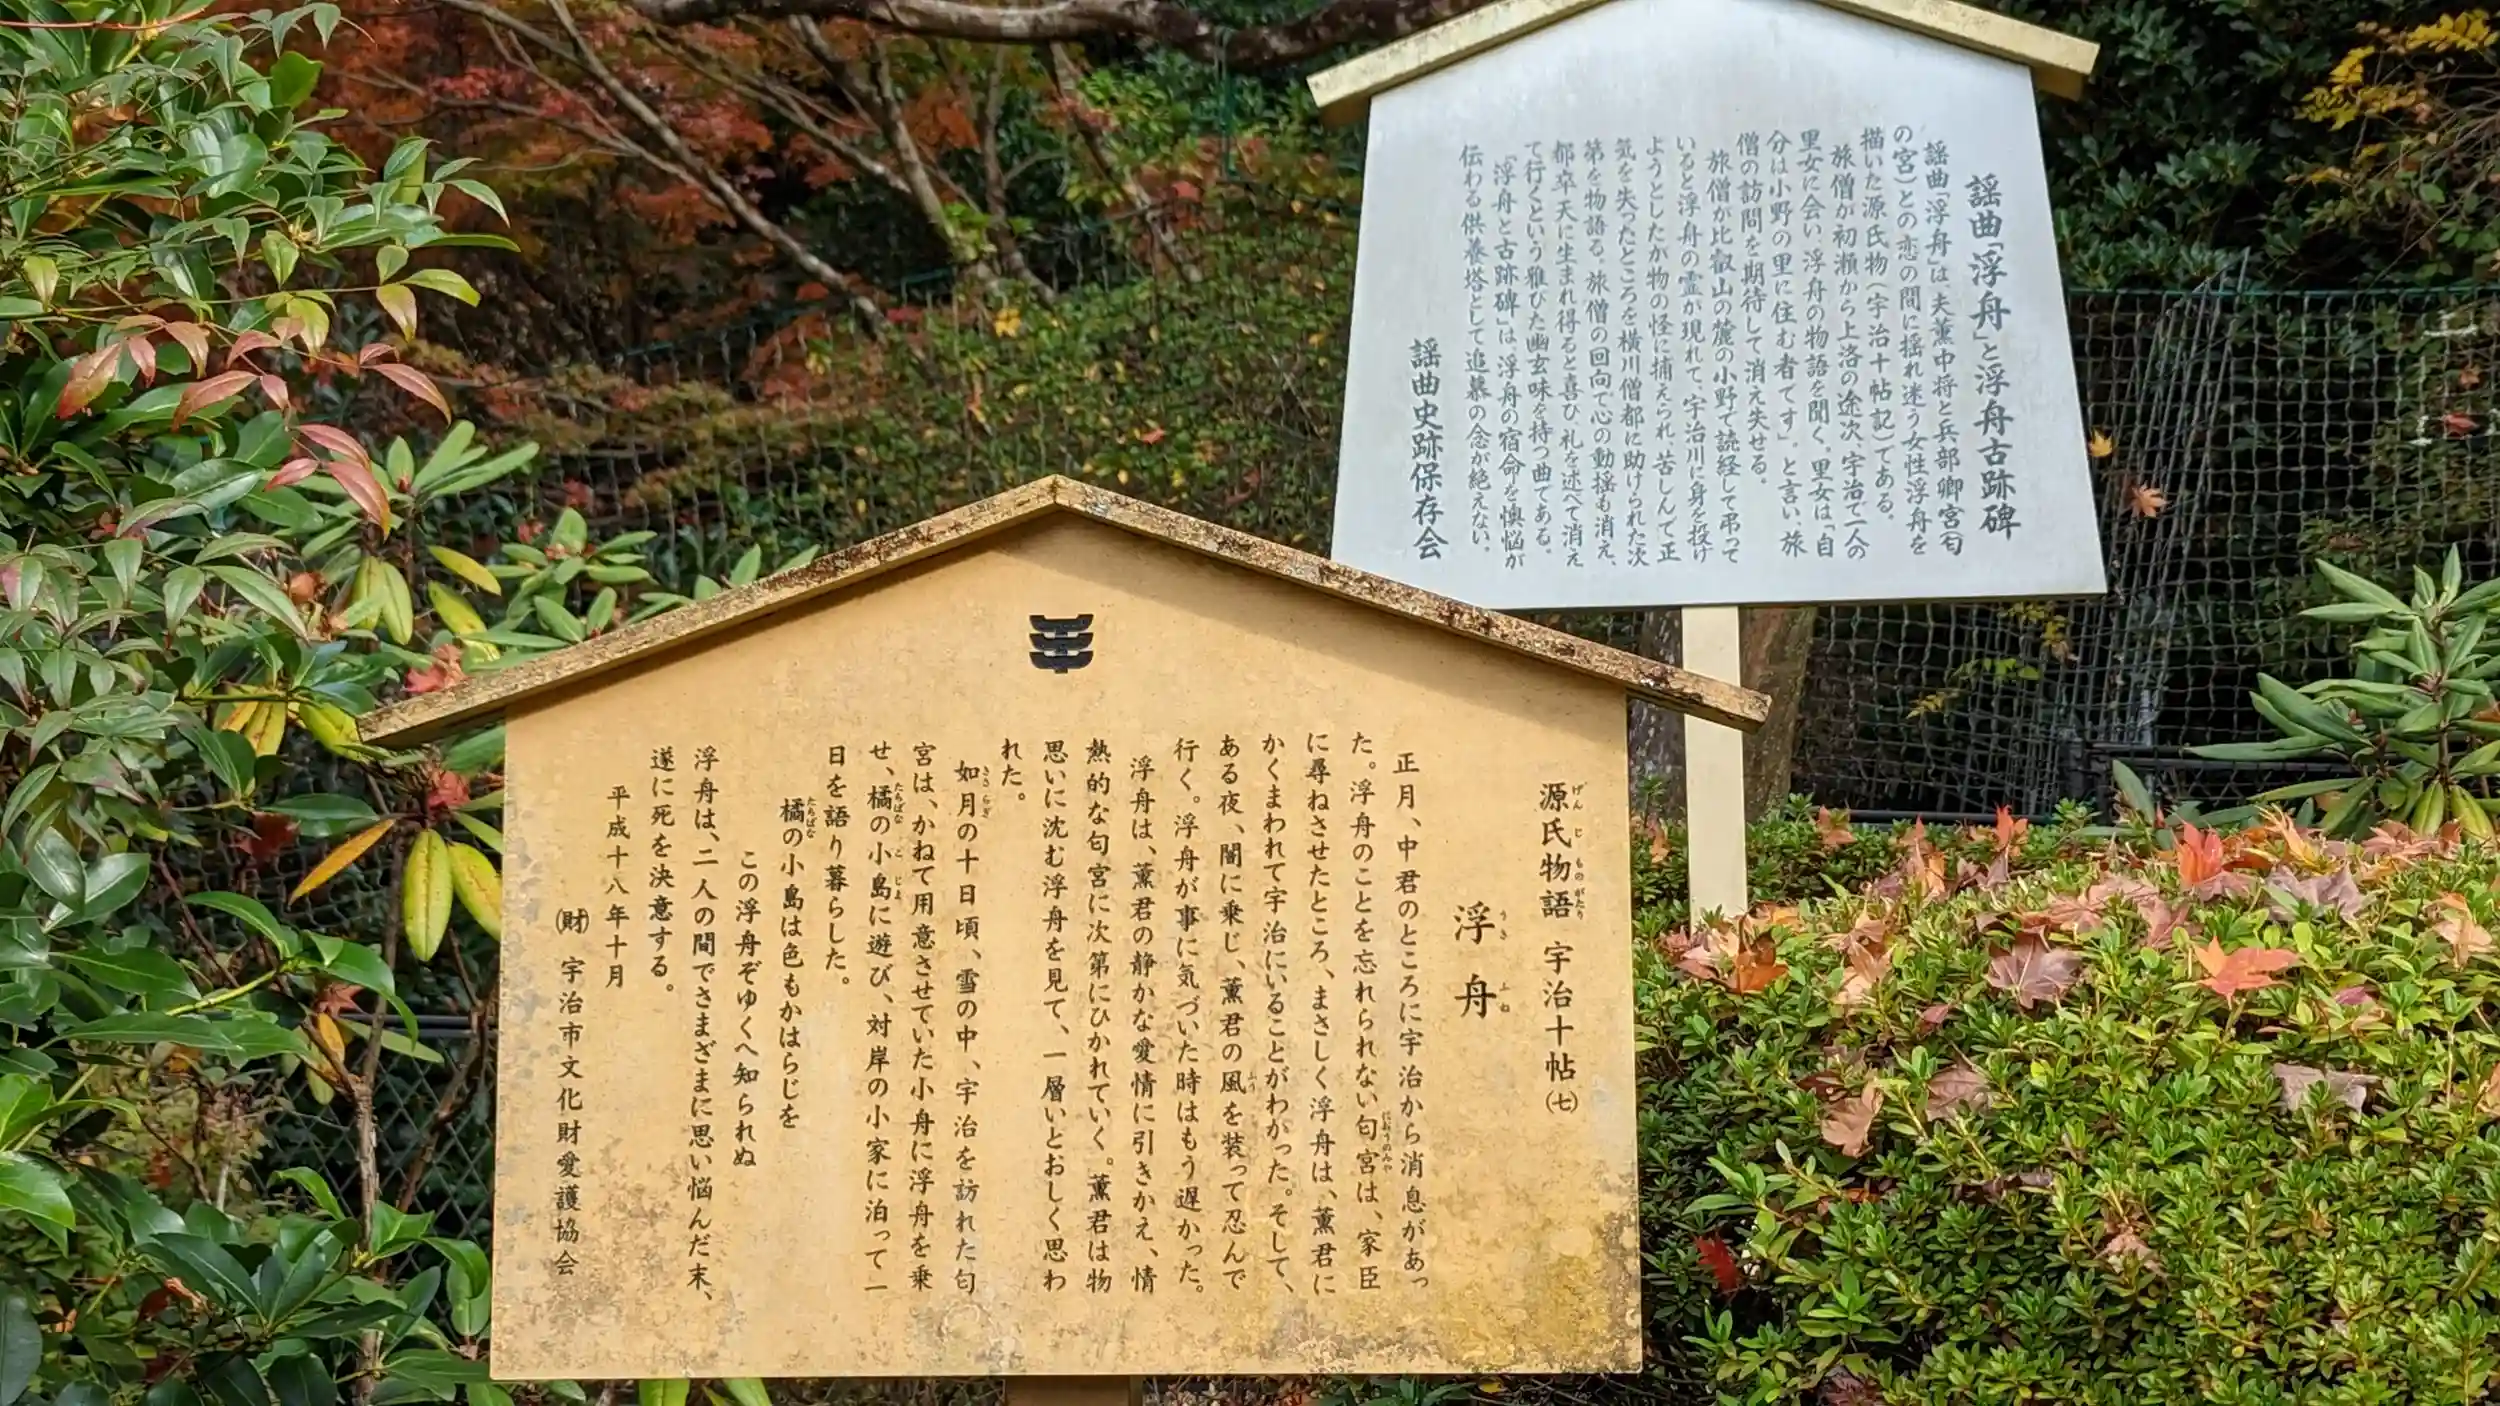 謡曲「浮舟」と浮舟古跡碑
謡曲「浮舟」は、夫薫中将と兵部卿宮(匂
の宮)との恋の間に揺れ迷う女性浮舟を
描いた源氏物(宇治十帖記)である。
旅僧が初瀬から上洛の途次、宇治で一人の
里女に会い、浮舟の物語を聞く。里女は「自
分は小野の里に住む者です」。と言い、旅
僧の訪問を期待して消え失せる。
旅僧が比叡山の麓の小野で読経して弔って
いると浮舟の霊が現れて、宇治川に身を投げ
ようとしたが物の怪に捕えられ、苦しんで正
気を失ったところを横川僧都に助けられた次
第を物語る。旅僧の回向で心の動揺も消え、
都卒天に生まれ得ると喜び、礼を述べて消え
て行くという雅びた幽玄味を持つ曲である。
「浮舟と古跡碑」は、浮舟の宿命を懊悩が
伝わる供養塔として追慕の念が絶えない。
謡曲史跡保存会
源氏物語 宇治十帖(七)
げんじものがたり
浮舟
うきふね
正月、中君のところに宇治から消息があっ
た。浮舟のことを忘れられない匂宮は、家臣
におうのみや
に尋ねさせたところ、まさしく浮舟は、薫君に
かくまわれて宇治にいることがわかった。そして、
ある夜、闇に乗じ、薫君の風を装って忍んで
ふう
行く。浮舟が事に気づいた時はもう遅かった。
浮舟は、薫君の静かな愛情に引きかえ、情
熱的な匂宮に次第にひかれていく。薫君は物
思いに沈む浮舟を見て、一層いとおしく思わ
れた。
如月の十日頃、雪の中、宇治を訪れた匂
きさらぎ
宮は、かねて用意させていた小舟に浮舟を乗
せ、橘の小島に遊び、対岸の小家に泊って一
たちばな こじま
日を語り暮らした。
橘の小島は色もかはらじを
たちばな
この浮舟ぞゆくへ知られぬ
浮舟は、二人の間でさまざまに思い悩んだ末、
遂に死を決意する。
平成十八年十月
(財) 宇治市文化財愛護協会